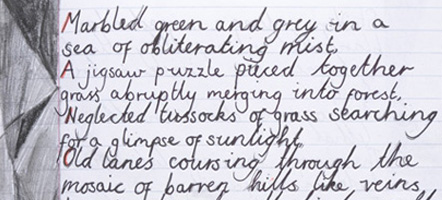 Marbled green and grey in a
sea of obliterating mist,
A jigsaw puzzle pieced together
grass abruptly merging into forest,
Neglected tussocks of grass searching
for a glimpse of sunlight
Old lanes coursing through the
mosaic of barren hills like veins